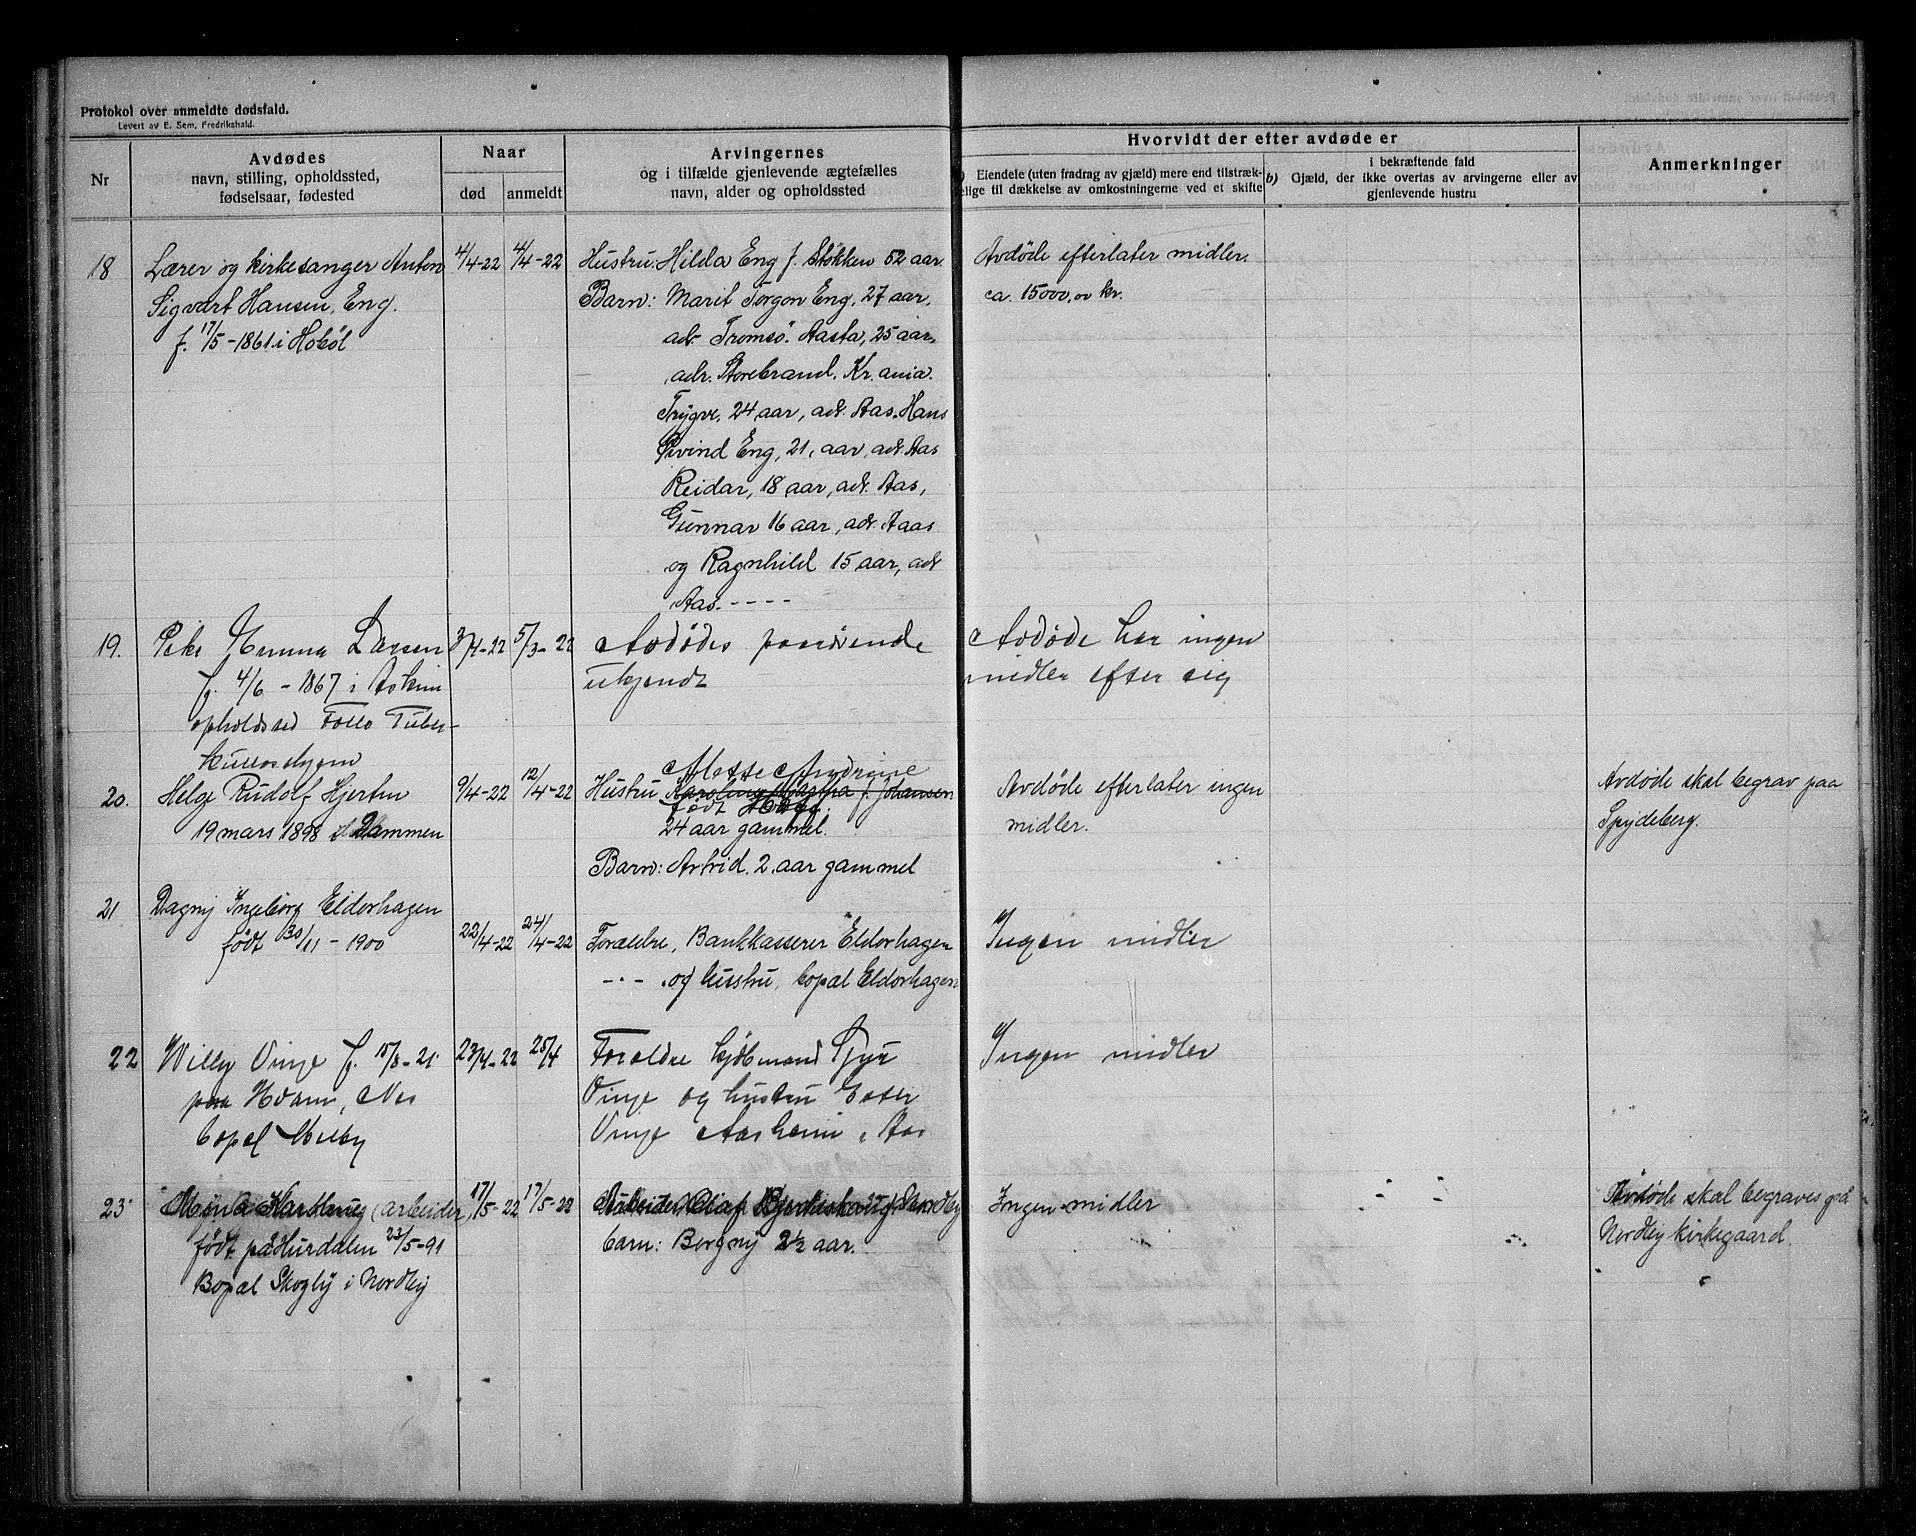 Protokol over anmeldte dødsfald.
Levert av E. Sem, Fredrikshald.
Nr
Avdødes
navn, stilling, opholdssted,
fødselsaar, fødested
Naar
død
anmeldt
Arvingernes
og i tilfælde gjenlevende ægtefælles
navn, alder og opholdssted
Hvorvidt der efter avdøde er
Eiendele (uten fradrag av gjæld) mere end tilstræk-
elige til dækkelse av omkostningerne ved et skifte
b) i bekræftende fald
Gjæld, der ikke overtas av arvingerne eller av
gjenlevende hustru
Anmerkninger
18
Lærer og kirkesanger Anton
Sigvart Hansen Eng.
f. 17/5-1861 i Hobøl
4/4-22
4/4-22
Hustru: Hilda Eng f. Støkken 52 aar.
Barn: Marit Torgon Eng, 27 aar,
adr Tromsö. Aasta, 25 aar,
adr. Storebrand. Kr.ania.
Trygve, 24 aar, adr. Aas. Hans
Øivind Eng, 21, aar, adr. Aas
Reidar, 18 aar, adr. Aas,
Gunnar 16 aar, adr. Aaas
og Ragnhild 15 aar, adr
Aas. - - - -
Avdøde efterlater midler.
ca. 15000,00 kr.
19.
Larsen
f. 4/6 - 1867 i Askim
opholdssted Follo Tuber-
3/4-22
5/3-22
Avdødes paarørende
ukjendt
Avdøde har ingen
midler efter sig
20.
Helge Rudolf Hjerten
19 mars 1898 Dammen
9/4-22
12/4-22
Hustru Mette Andrine
Karoline f. Johansen
født
24 aar gammel.
Barn: Astrid. 2 aar gammel
Avdøde efterlater ingen
midler.
Avdøde skal begrav paa
Spydeberg.
21
Dagny Ingeborg Eldorhagen
født 30/11 - 1900
22/4-22
24/4-22
Forældre, Bankkasserer Eldorhagen
- - - og hustru, bopæl Eldorhagen
Ingen midler
22
Willy Vinje f. 15/8-21
paa Hvam, Nes
bopæl
23/4-22
25/4
Foreldre kjøbmand Sjur
Vinje og hustru Ester
Vinje Aasheim i Aas
Ingen midler
23
(arbeider)
født på Hurdalen 23/5-91
Bopæl Skogly i Nordby
17/5-22
17/5-22
Arbeider Olaf Nordby
barn: Borgny 2½ aar.
Ingen midler
Avdøde skal begraves på
Nordby kirkegaard.